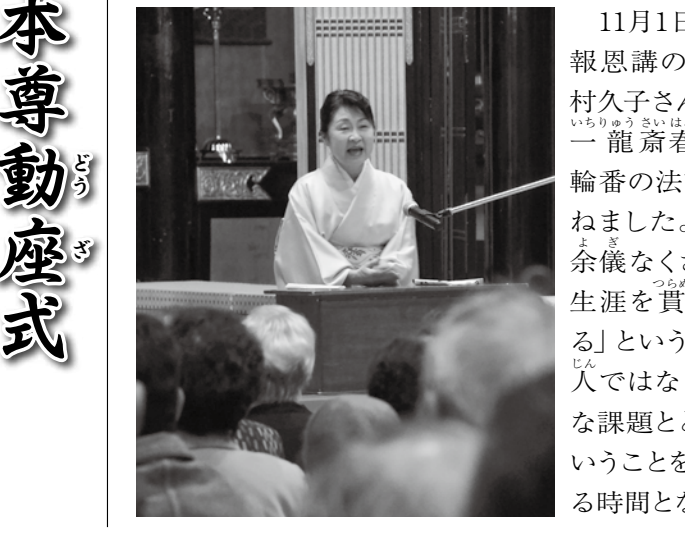 本尊動座式
どうざ
11月1日
報恩講の
村久子さん
いちりゅうさいは
一龍斎春
輪番の法
ねました。
よぎ
余儀なくさ
つらぬ
生涯を貫
る」という
じん
人ではな
な課題とと
いうことを
る時間とな